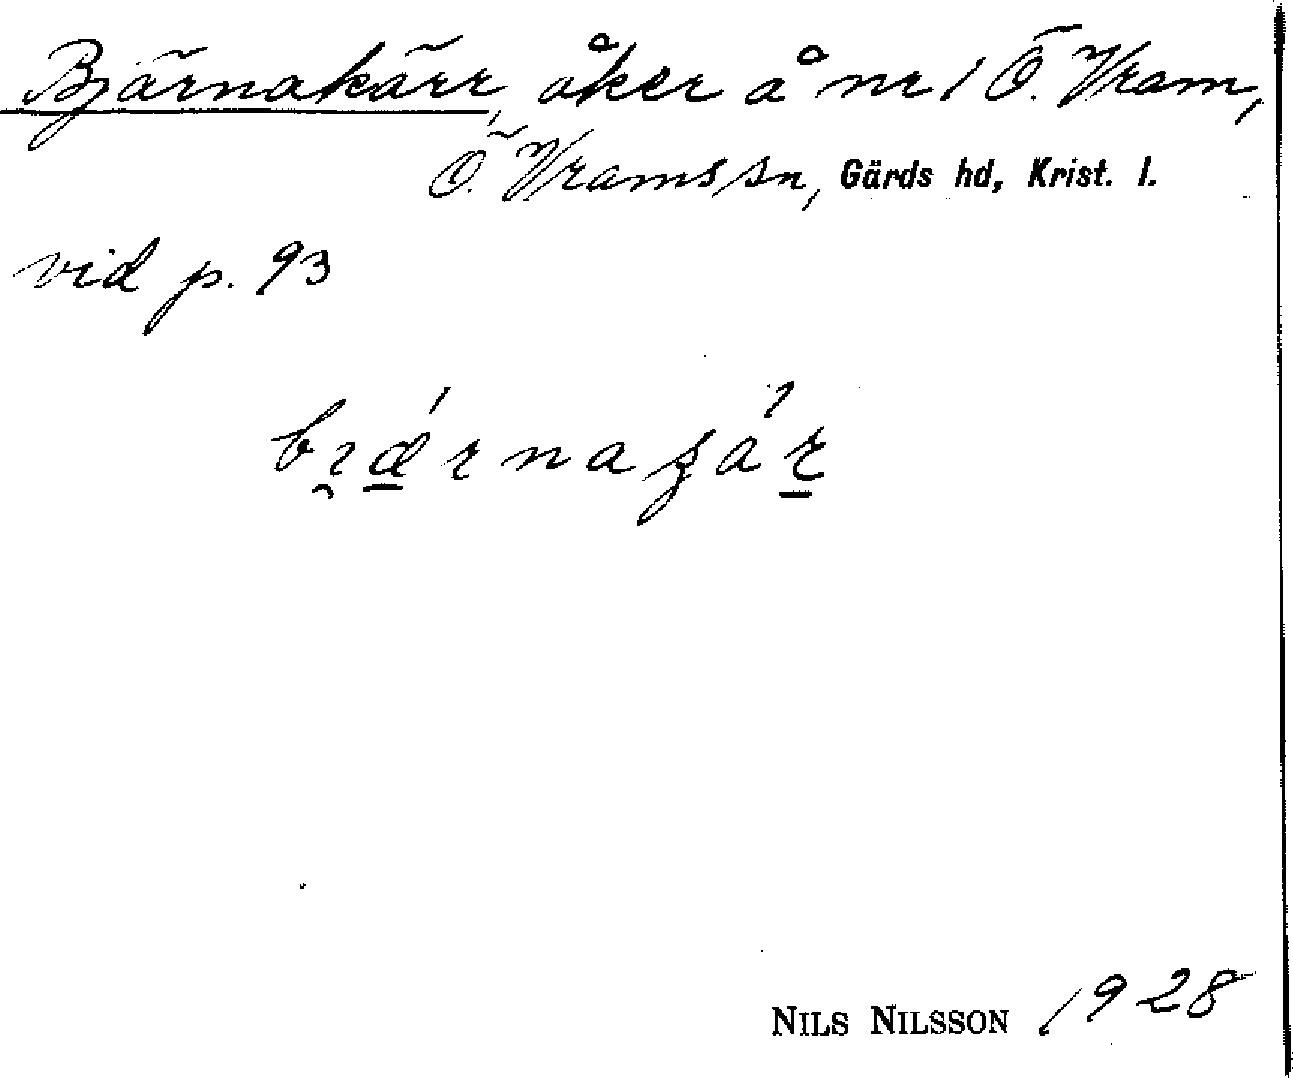 Bjärnakärr, åker å nr 1 Ö. Vram,
Ö. Vrams sn, Gärds hd, Krist. l.
vid p. 93
NILS NILSSON 1928